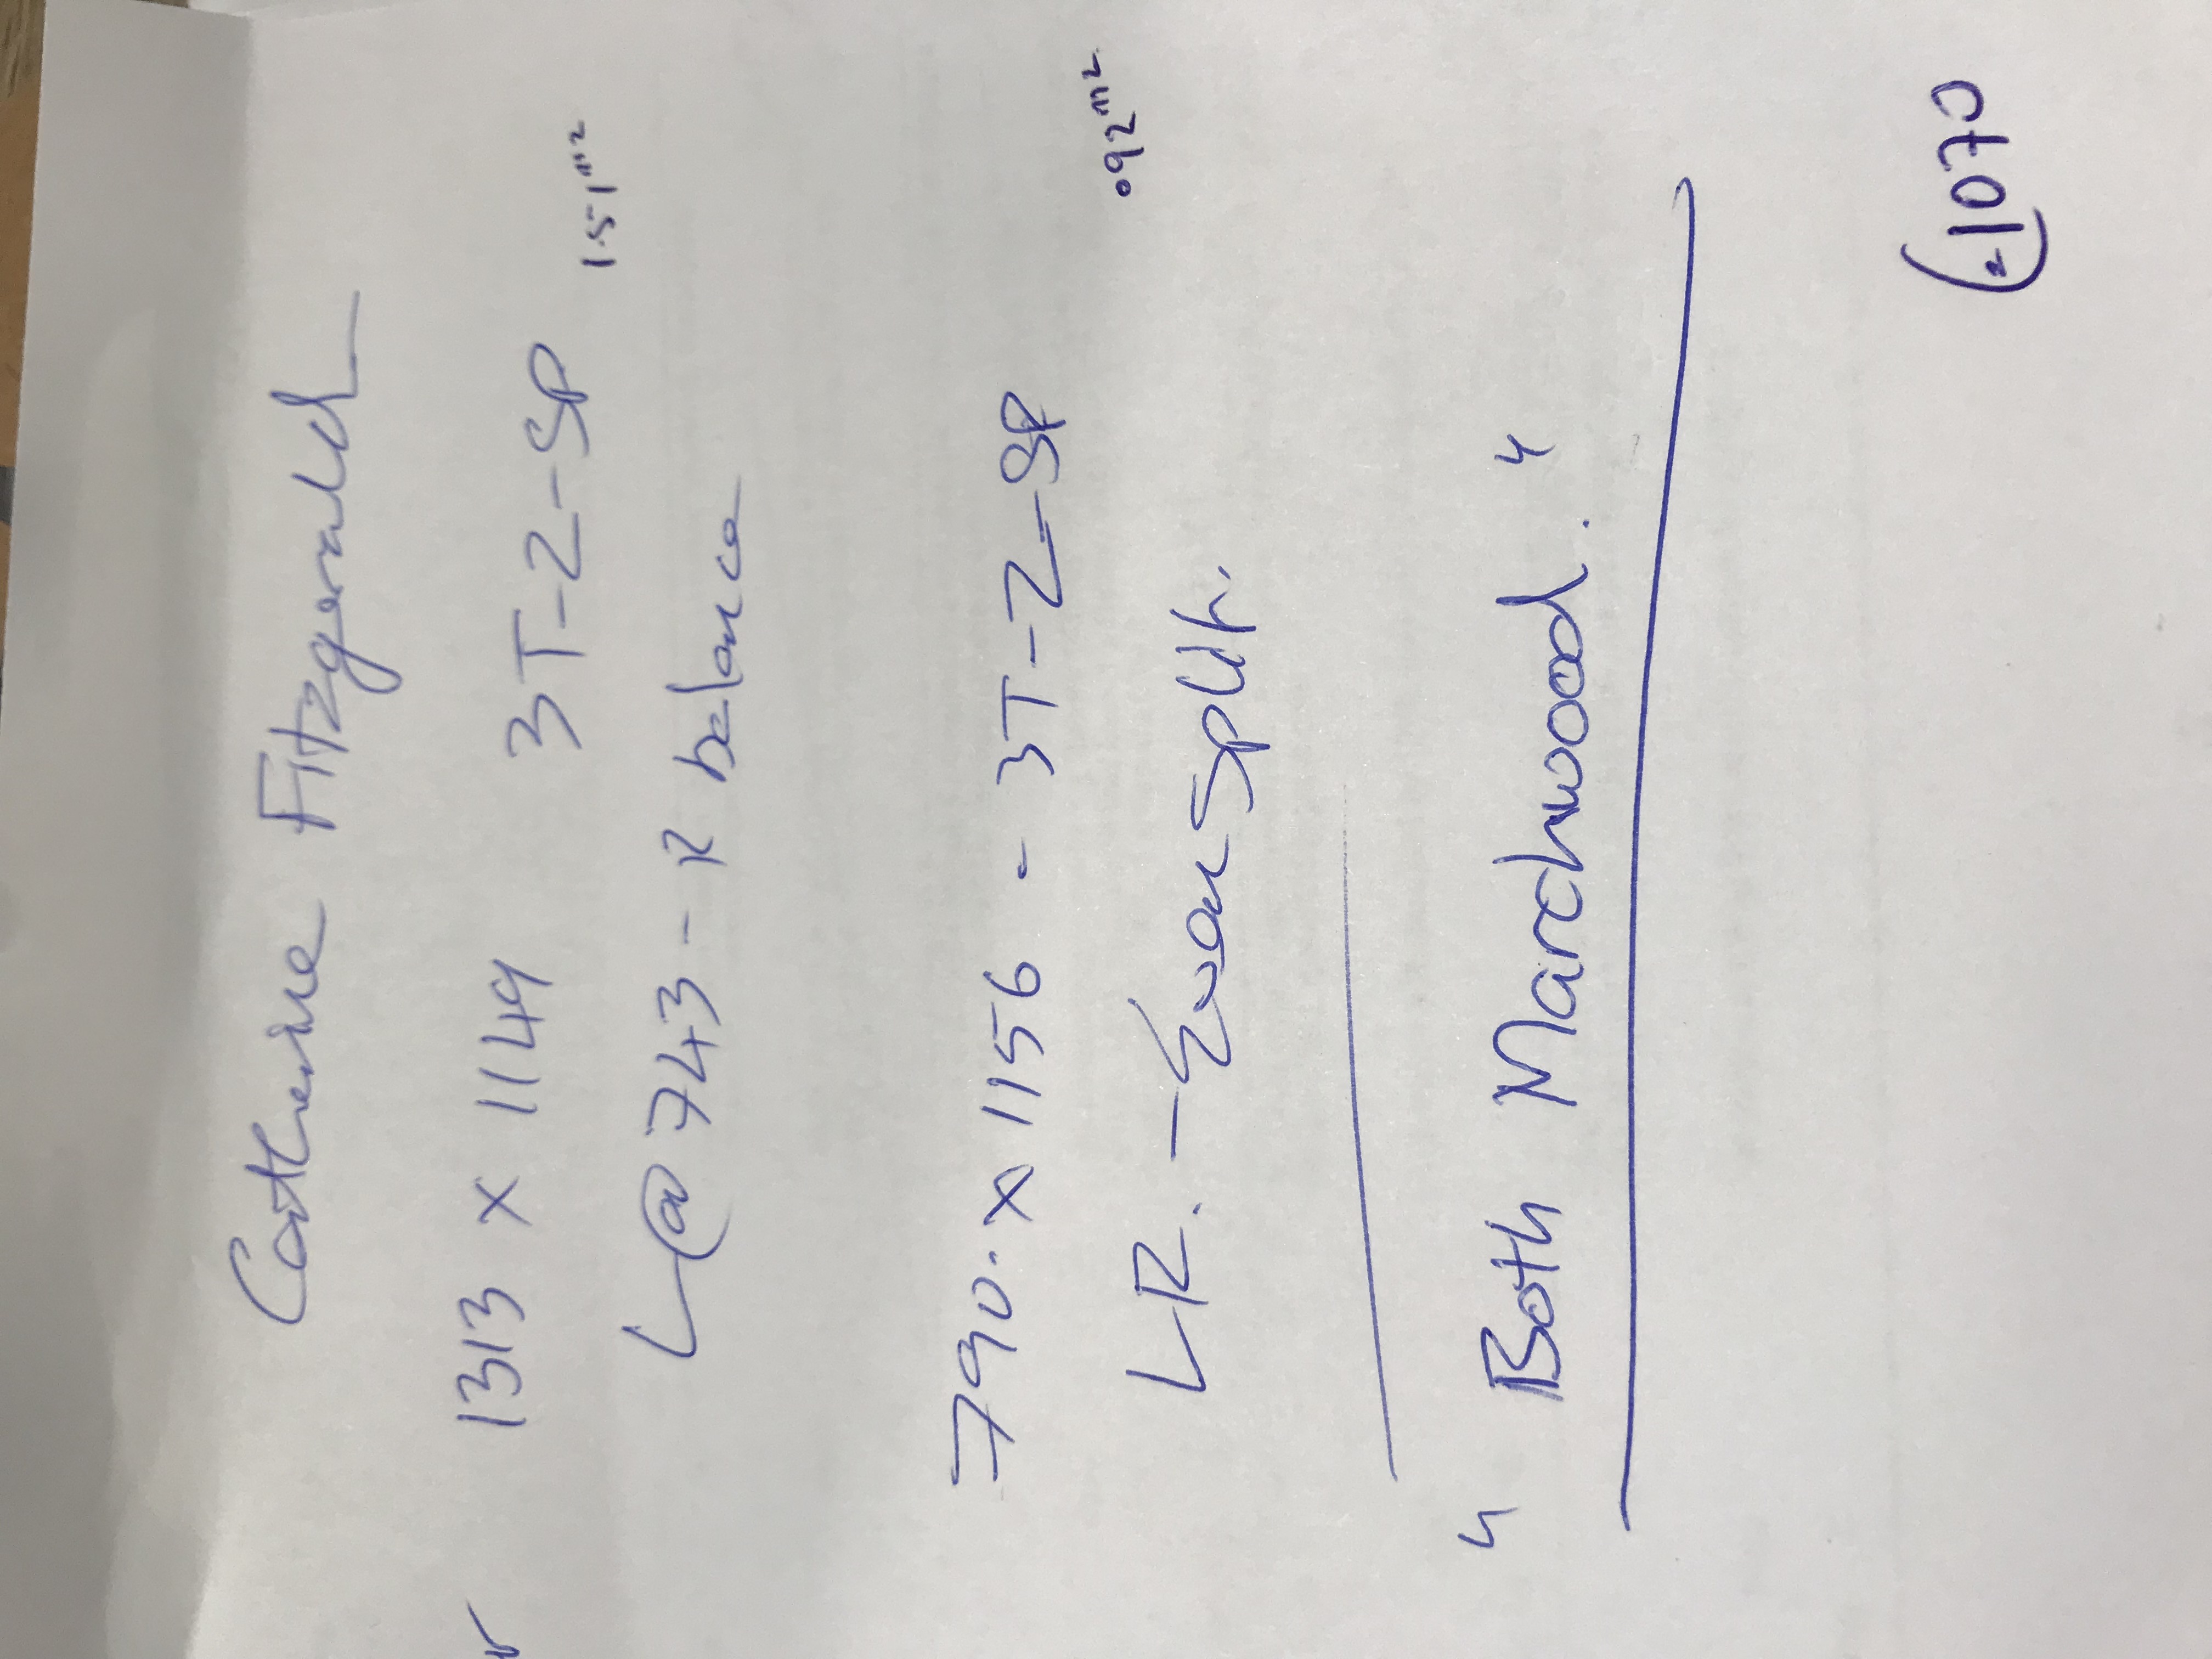 Catherine Fitzgerald
1313 x 1149 3T-Z-SP
1.51m²
L@743 - R balance
790 x 1156 - 3T-Z-SP
0.92m²
LR. - Even split.
" Both Marchwood. "
1070